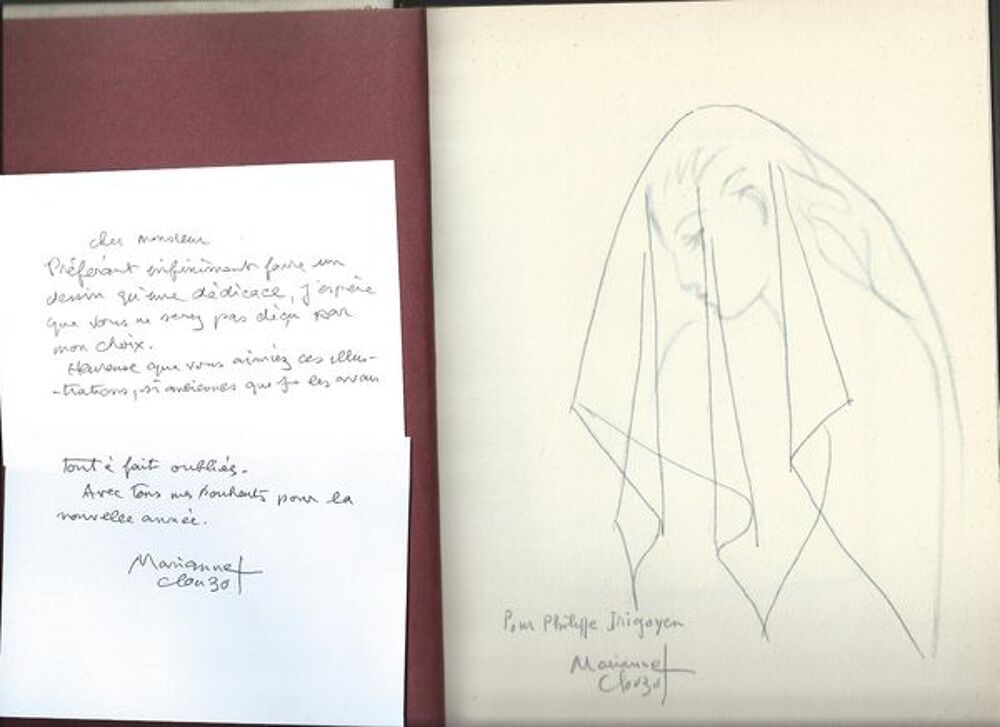 cher monsieur
Préférant infiniment faire un
dessin qu'une dédicace, j'espère
que vous ne serez pas déçu par
mon choix.
Heureuse que vous aimiez ces illus-
-trations, si anciennes que je les avais
tout à fait oubliées.
Avec tous mes souhaits pour la
nouvelle année.
Marianne
Clouzot
Pour Philippe Irigoyen
Marianne
Clouzot